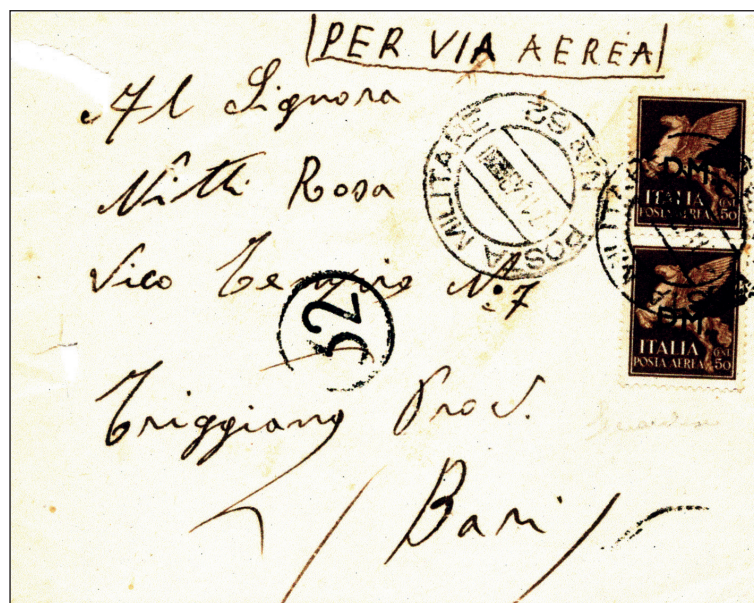 PER VIA AEREA
Al Signora
Nitti Rosa
Vico Tempio N° 7
Triggiano Prov.
Bari
POSTA MILITARE
32
ITALIA
POSTA AEREA
50
ITALIA
POSTA AEREA
50